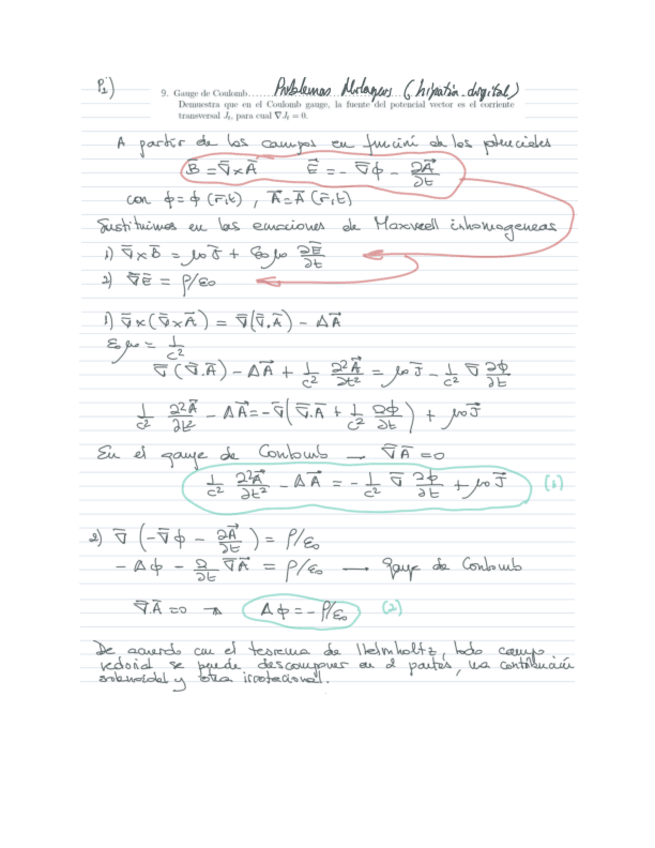 P1)
9. Gauge de Coulomb...... Problemas Milagros (hipatia-digital)
Demuestra que en el Coulomb gauge, la fuente del potencial vector es el corriente
transversal J_t, para cual ∇J_t = 0.
A partir de los campos en función de los potenciales
B̄ = ∇̄×Ā   Ē = -∇̄ϕ - ∂Ā/∂t
con ϕ = ϕ(r̄,t), Ā = Ā(r̄,t)
Sustituimos en las ecuaciones de Maxwell inhomogeneas
1) ∇̄×B̄ = μ₀J̄ + ε₀μ₀ ∂Ē/∂t
2) ∇̄Ē = ρ/ε₀
1) ∇̄×(∇̄×Ā) = ∇̄(∇̄.Ā) - ΔĀ
ε₀μ₀ = 1/c²
∇̄(∇̄.Ā) - ΔĀ + 1/c² ∂²Ā/∂t² = μ₀J̄ - 1/c² ∇̄ ∂ϕ/∂t
1/c² ∂²Ā/∂t² - ΔĀ = -∇̄(∇̄.Ā + 1/c² ∂ϕ/∂t) + μ₀J̄
En el gauge de Coulomb → ∇̄Ā = 0
1/c² ∂²Ā/∂t² - ΔĀ = -1/c² ∇̄ ∂ϕ/∂t + μ₀J̄ (1)
2) ∇̄(-∇̄ϕ - ∂Ā/∂t) = ρ/ε₀
-Δϕ - ∂/∂t ∇̄Ā = ρ/ε₀ → gauge de Coulomb
∇̄.Ā = 0 → Δϕ = -ρ/ε₀ (2)
De acuerdo con el teorema de Helmholtz, todo campo
vectorial se puede descomponer en 2 partes, una contribución
solenoidal y otra irrotacional.